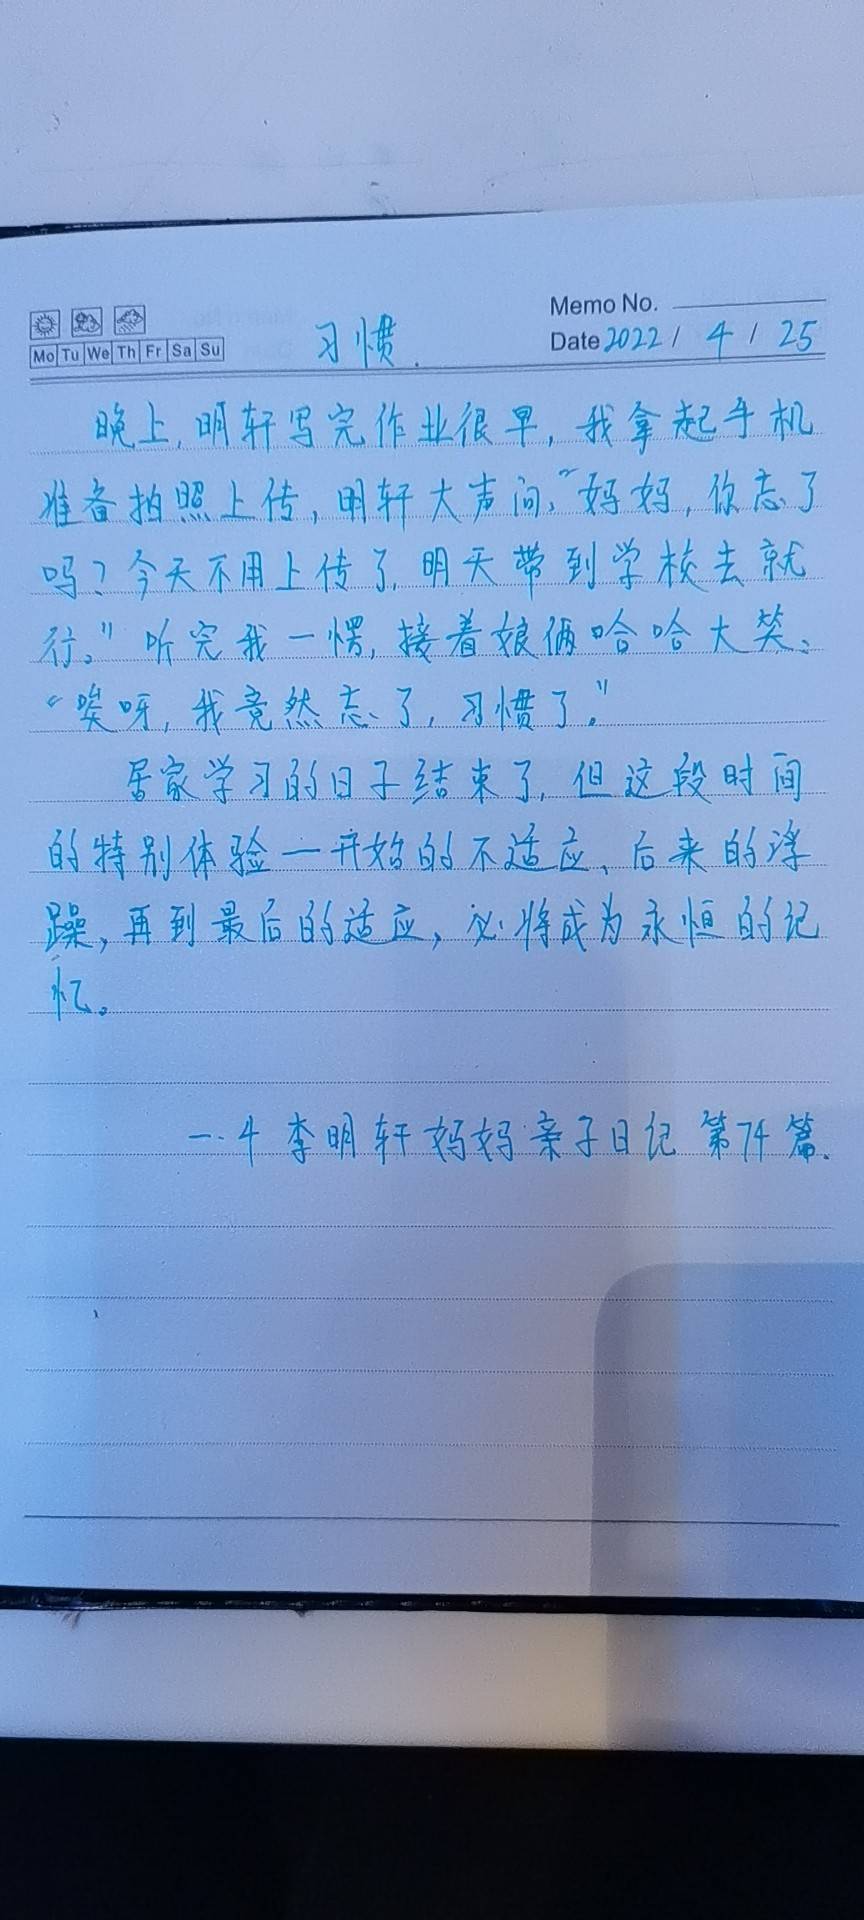 Memo No.
Mo Tu We Th Fr Sa Su
习惯.
Date 2022 / 4 / 25
晚上,明轩写完作业很早,我拿起手机
准备拍照上传,明轩大声问:“妈妈,你忘了
吗?今天不用上传了,明天带到学校去就
行。”听完我一愣,接着娘俩哈哈大笑:
“唉呀,我竟然忘了,习惯了。”
居家学习的日子结束了,但这段时间
的特别体验一开始的不适应、后来的浮
躁,再到最后的适应,必将成为永恒的记
忆。
一.4 李明轩妈妈亲子日记 第74篇.